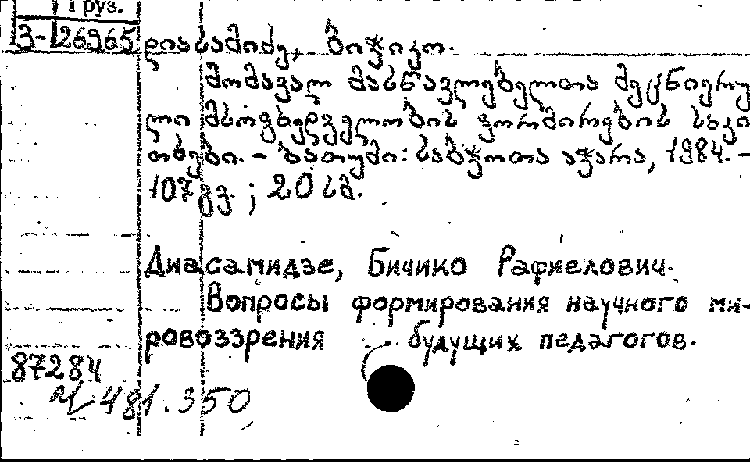 Груз.
3-26965
დიასამიძე, ბიჭიკო.
მომავალ მასწავლებელთა მეცნიერუ
ლი მსოფლმხედველობის ფორმირების საკი
თხები. - ბათუმი: საბჭოთა აჭარა, 1984. -
107 გვ. ; 20 სმ.
Диасамидзе, Бичико Рафиелович.
Вопросы формирования научного ми-
ровоззрения будущих педагогов.
87284
481.350